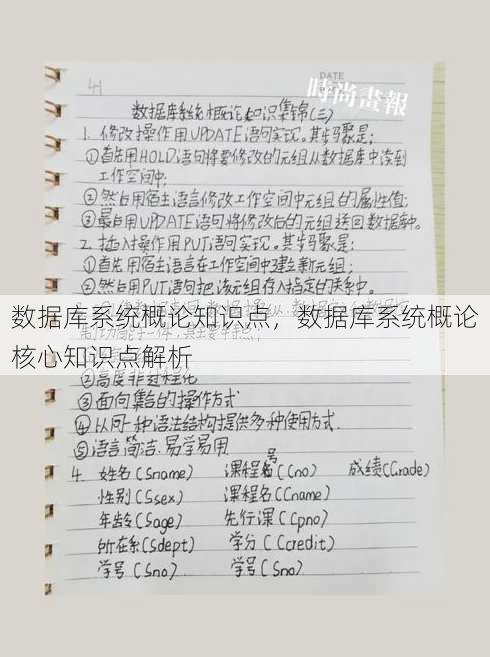 41
DATE
時尚畫報
数据库系统概论知识集锦(三)
1. 修改操作用UPDATE语句实现。其步骤是;
①首先用HOLD语句将要修改的元组从数据库中读到
工作空间中;
②然后用宿主语言修改工作空间中元组的属性值;
③最后用UPDATE语句将修改后的元组送回数据库中。
2. 插入操作用PUT语句实现。其步骤是:
①首先用宿主语言在工作空间中建立新元组;
②然后用PUT语句把该元组存入指定的关系中。
数据库系统概论知识点,数据库系统概论
核心知识点解析
②高度非过程化
③面向集合的操作方式
④以同一种语法结构提供多种使用方式.
⑤语言简洁.易学易用.
4. 姓名(Sname) 课程号(Cno) 成绩(Grade)
性别(Ssex) 课程名(Cname)
年龄(Sage) 先行课(Cpno)
所在系(Sdept) 学分(Ccredit)
学号(Sno) 学号(Sno)